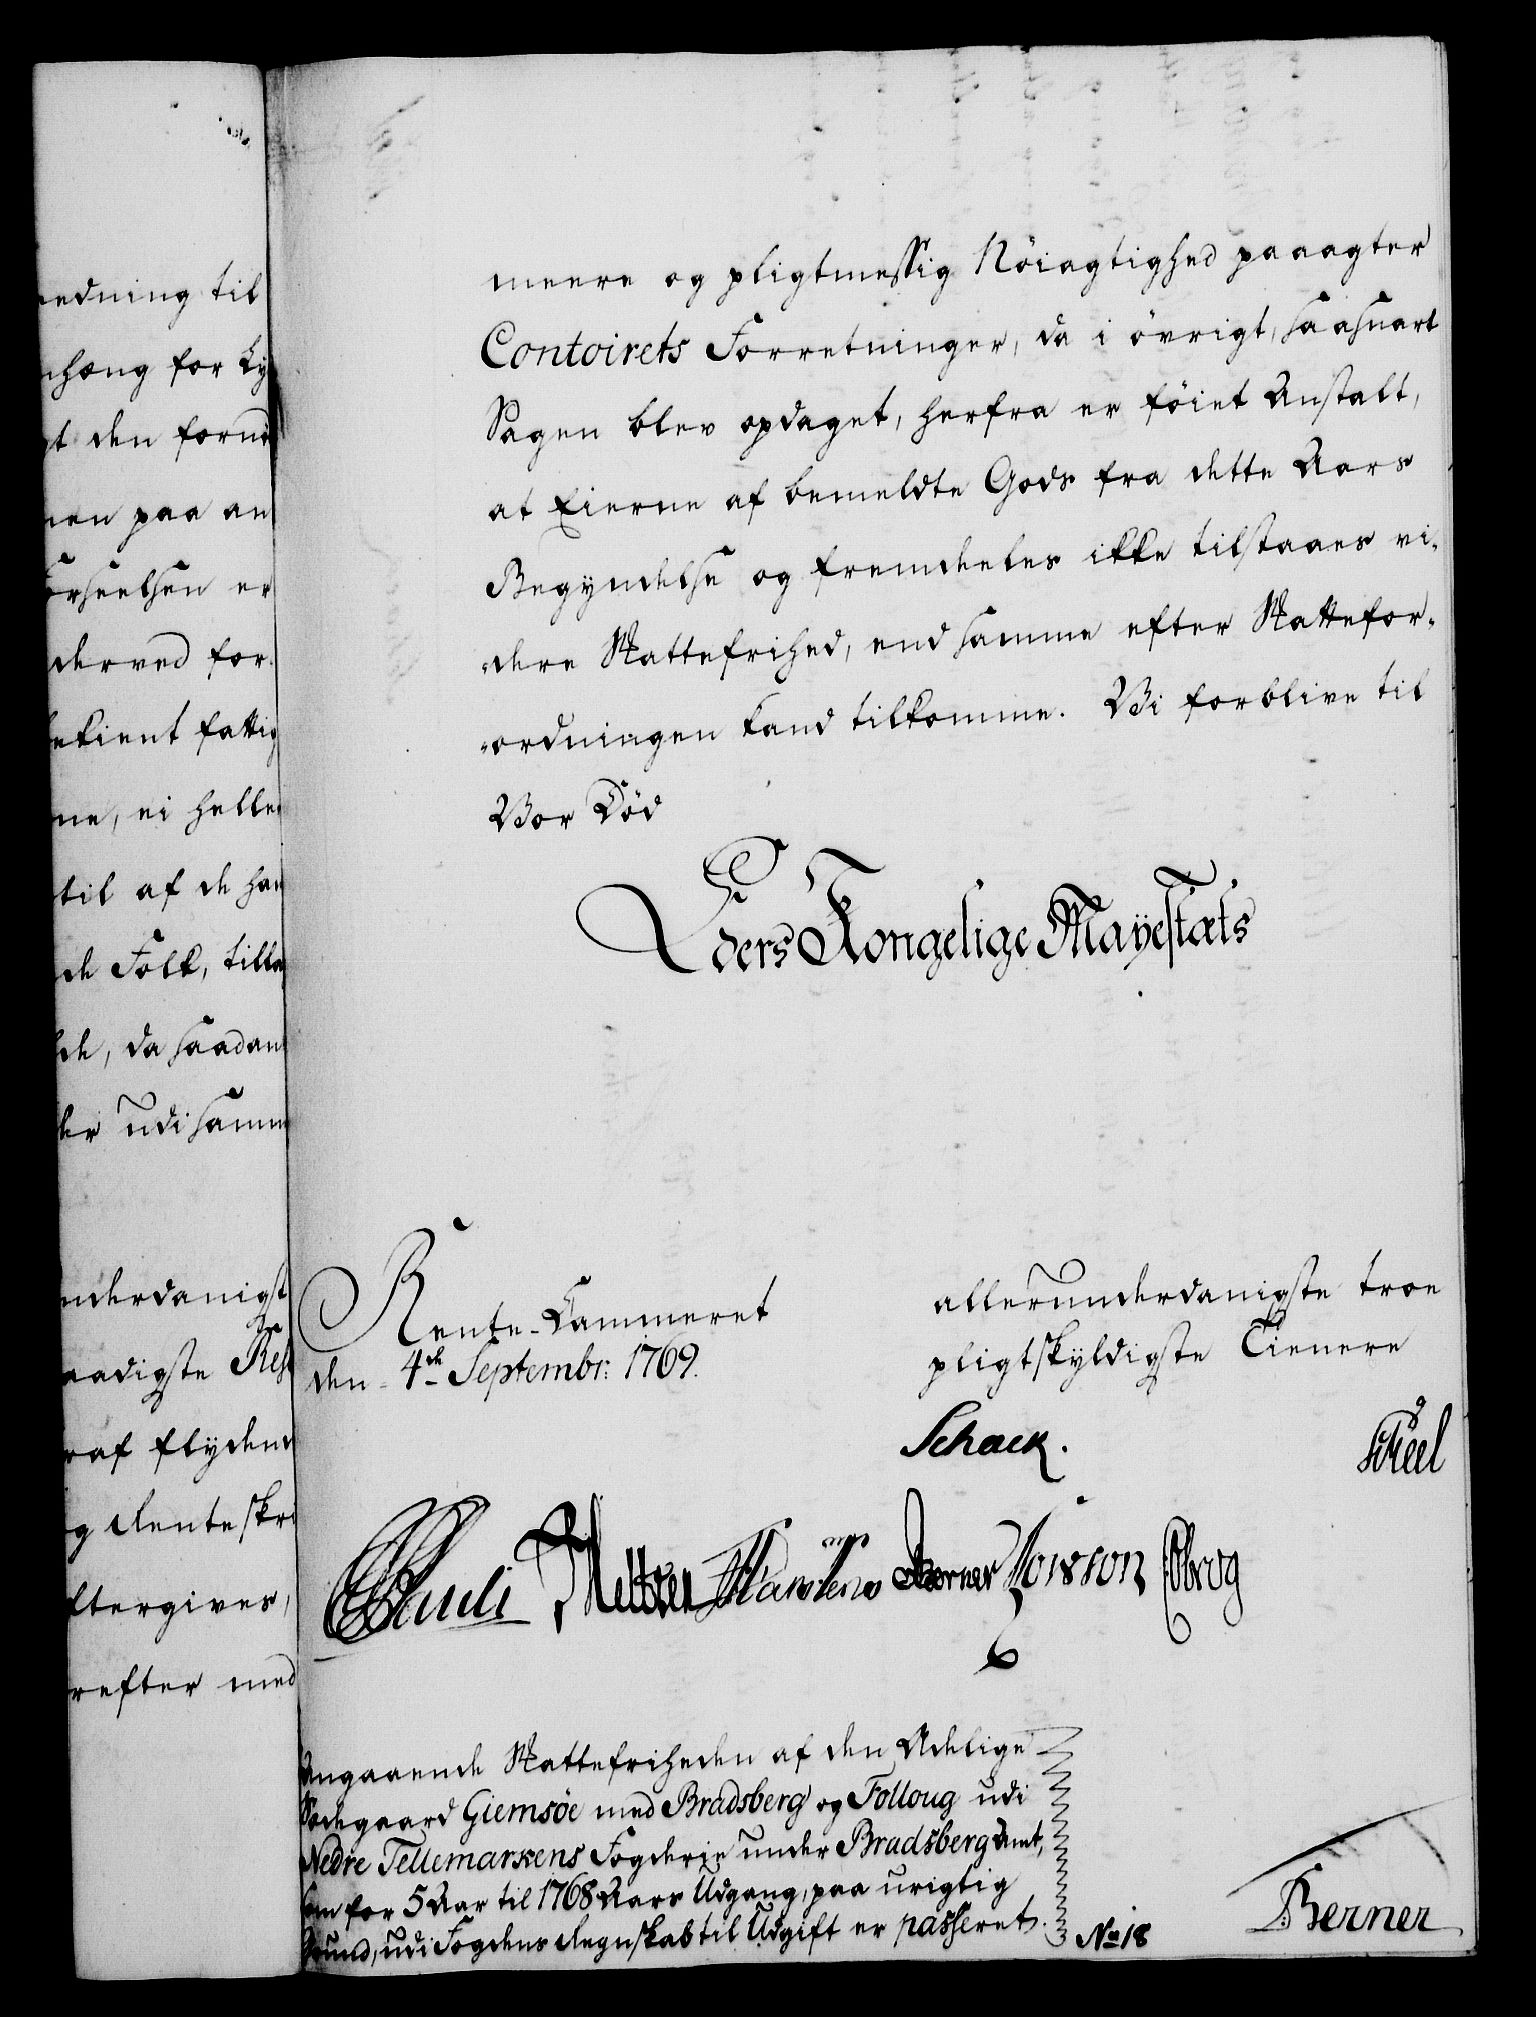 edning til
hæng for Ly
gt den forme
nen paa an
orseelsen er
derved for-
bekient fattig
ne, ei heller
til af de han
de Folk, tilla
de, da saadan
ler udi samm
nderdanigst
aadigste Res
raf flydend
g Renteskri
ftergives,
refter med
meere og pligtmessig Nöiagtighed paaagter
Contoirets Forretninger, da i övrigt, saasnart
Sagen blev opdaget, herfra er föiet Anstalt,
at Eierne af bemeldte Gods fra dette Aars
Begyndelse og fremdeeles ikke tilstaaes vi-
dere Skattefrihed, end samme efter Skattefor-
ordningen kand tilkomme. Vi forblive til
Vor Död
Eders Kongelige Mayestæts
Rente-Cammeret
den 4de Septembr: 1769.
allerunderdanigste troe
pligtskyldigste Tienere
Schack.
Scheel
Pauli Meltzer Karstens Berner Lowson Obrog
Angaaende Skattefriheden af den Adelige
Sædegaard Giemsöe med Bradsberg og Folloug udi
Nedre Tellemarkens Fögderie under Bradsberg Amt,
som for 5 Aar til 1768 Aars Udgang, paa urigtig
Grund, udi Fogdens Regnskab til Udgift er passeret.
No 18
Berner